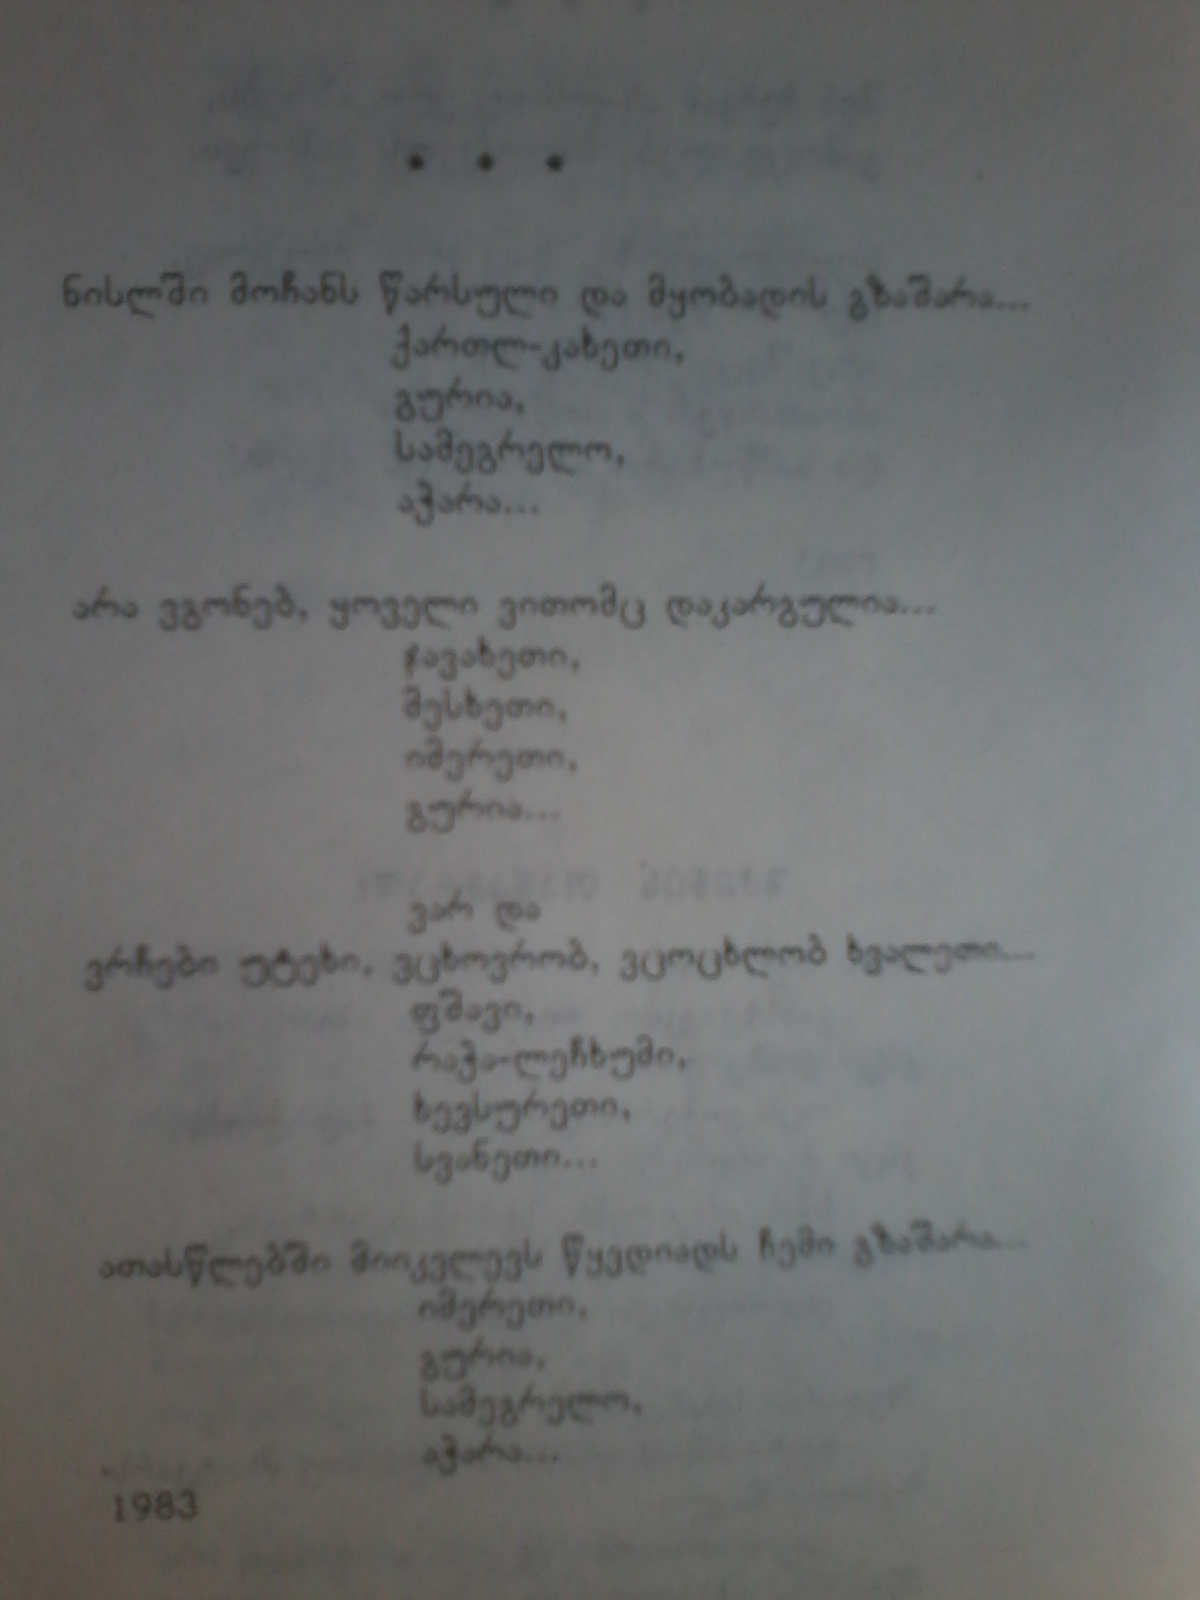 • • •
ნისლში მოჩანს წარსული და მყობადის გზაშარა...
ქართლ-კახეთი,
გურია,
სამეგრელო,
აჭარა...
არა ვგონებ, ყოველი ვითომც დაკარგულია...
ჯავახეთი,
მესხეთი,
იმერეთი,
გურია...
ვარ და
ვრჩები უტეხი, ვცხოვრობ, ვცოცხლობ ხვალეთი...
ფშავი,
რაჭა-ლეჩხუმი,
ხევსურეთი,
სვანეთი...
ათასწლებში მიიკვლევს წყვდიადს ჩემი გზაშარა...
იმერეთი,
გურია,
სამეგრელო,
აჭარა...
1983